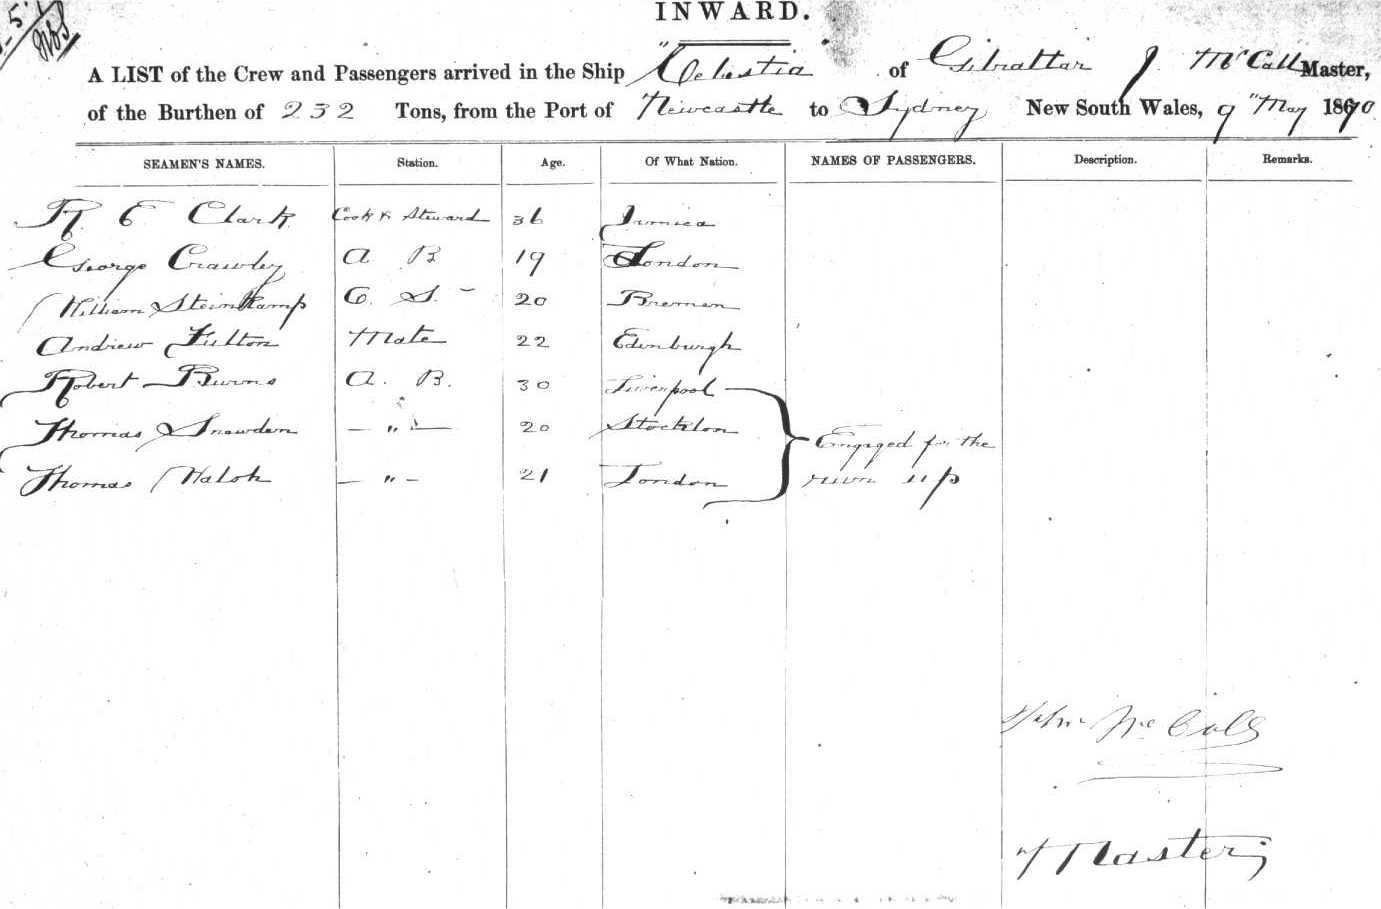 INWARD.
A LIST of the Crew and Passengers arrived in the Ship "Celestia" of Gibraltar J. McCall Master,
of the Burthen of 232 Tons, from the Port of Newcastle to Sydney New South Wales, 9" May 1870
SEAMEN'S NAMES. Station. Age. Of What Nation. NAMES OF PASSENGERS. Description. Remarks.
R. E Clark Cook & Steward 36 Jamica
George Crawley A B 19 London
William Steinkamp O. S. 20 Bremen
Andrew Fulton Mate 22 Edinburgh
Robert Burns A. B. 30 Liverpool
Thomas Snowden " 20 Stockton Engaged for the
Thomas Walsh " 21 London run up
John McCall
Master